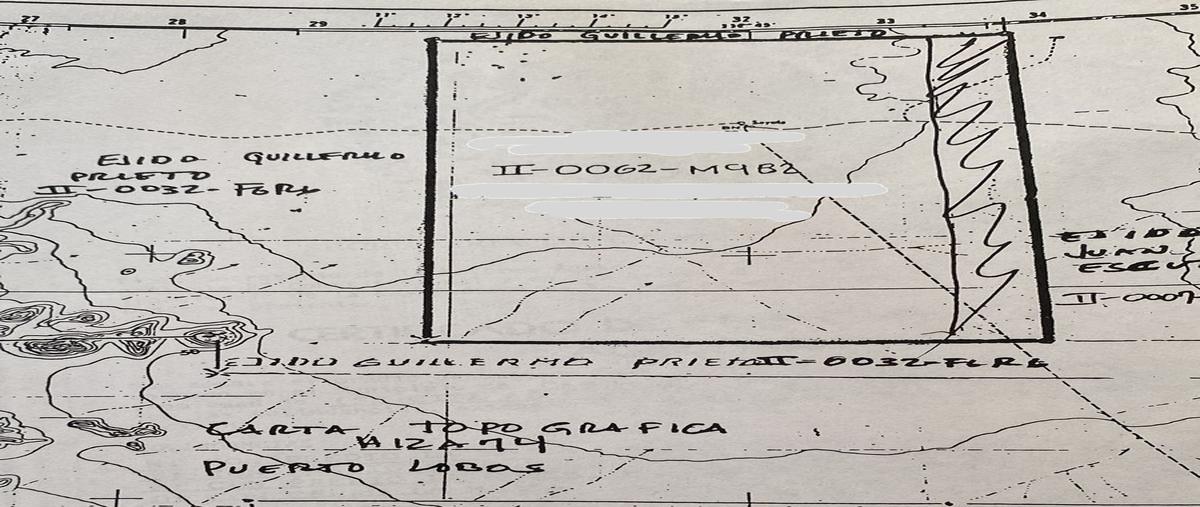 27 28 29 11' 12' 13' 14' 15' 32 33 34 35
EJIDO GUILLERMO PRIETO
EJIDO GUILLERMO
PRIETO
II-0032-F6R6
II-0062-M9B2
EJIDO
JUAN
ESCU
II-0007
EJIDO GUILLERMO PRIETO II-0032-F6R6
CARTA TOPOGRAFICA
H12A74
PUERTO LOBOS